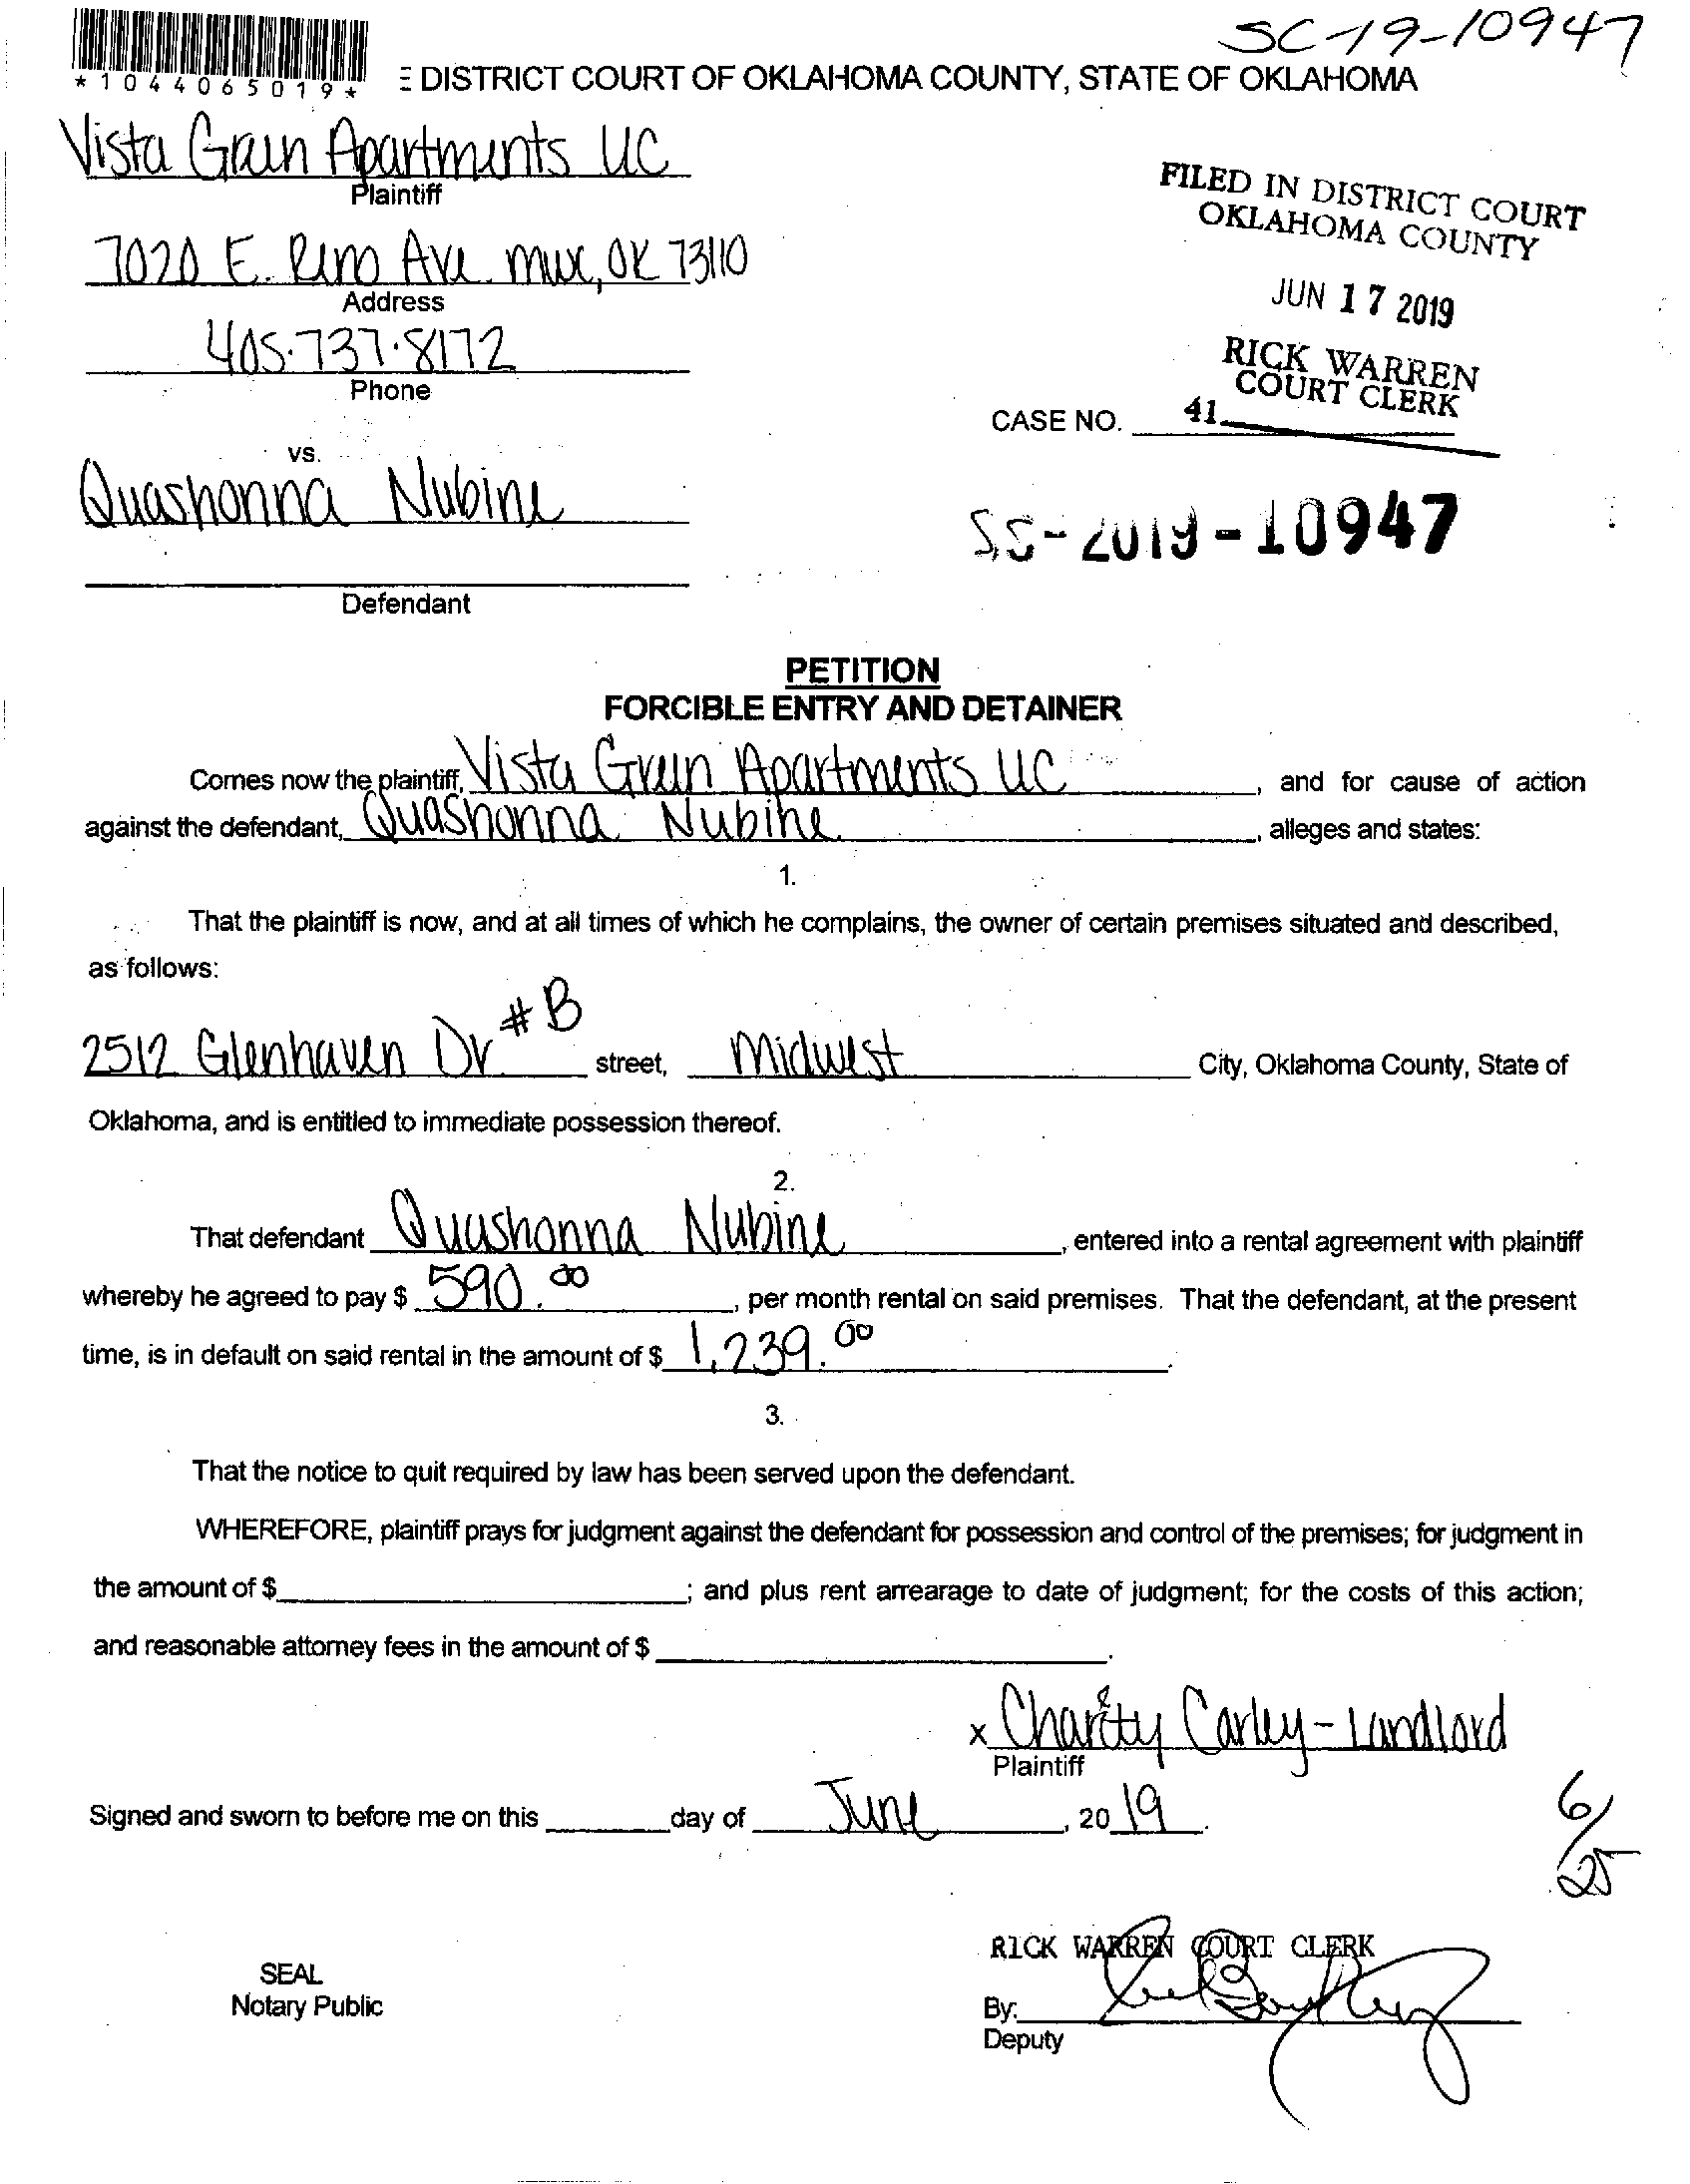 SC-19-10947
*1044065019*
E DISTRICT COURT OF OKLAHOMA COUNTY, STATE OF OKLAHOMA
Vista Green Apartments LLC
Plaintiff
FILED IN DISTRICT COURT
OKLAHOMA COUNTY
7020 E. Reno Ave. MWC, OK 73110
Address
JUN 17 2019
405.737.8172
Phone
RICK WARREN
COURT CLERK
CASE NO. 41
vs.
Quashonna Nubine
SC-2019-10947
Defendant
PETITION
FORCIBLE ENTRY AND DETAINER
Comes now the plaintiff, Vista Green Apartments LLC, and for cause of action
against the defendant, Quashonna Nubine, alleges and states:
1.
That the plaintiff is now, and at all times of which he complains, the owner of certain premises situated and described,
as follows:
2512 Glenhaven Dr #B street, Midwest City, Oklahoma County, State of
Oklahoma, and is entitled to immediate possession thereof.
2.
That defendant Quashonna Nubine, entered into a rental agreement with plaintiff
whereby he agreed to pay $ 590.00, per month rental on said premises. That the defendant, at the present
time, is in default on said rental in the amount of $ 1,239.00.
3.
That the notice to quit required by law has been served upon the defendant.
WHEREFORE, plaintiff prays for judgment against the defendant for possession and control of the premises; for judgment in
the amount of $ ; and plus rent arrearage to date of judgment; for the costs of this action;
and reasonable attorney fees in the amount of $ .
x Charity Carley - Landlord
Plaintiff
Signed and sworn to before me on this day of June, 2019.
6/25
RICK WARREN COURT CLERK
SEAL
Notary Public
By:
Deputy